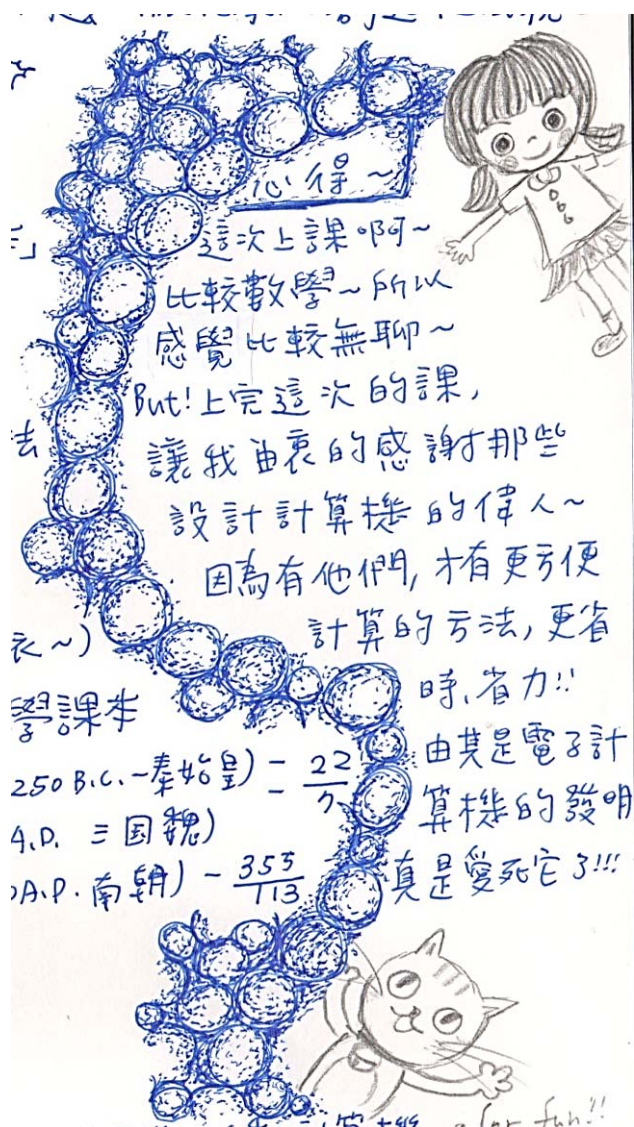 心得~
這次上課啊~
比較數學~所以
感覺比較無聊~
But!上完這次的課,
讓我由衷的感謝那些
設計計算機的偉人~
因為有他們,才有更方便
計算的方法,更省
時、省力!!
由其是電子計
算機的發明
真是愛死它了!!!
法
衣~)
學課本
250 B.C.~秦始皇) = 22/7
A.D. 三国魏)
A.D. 南朝) ~ 355/113
for fun!!